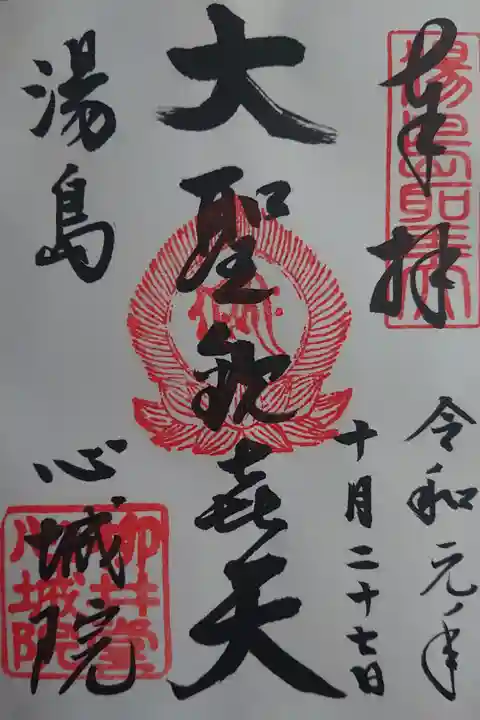 奉拝
湯島聖天
令和元年
十月二十七日
大聖歓喜天
湯島
心城院
柳井堂
心城院